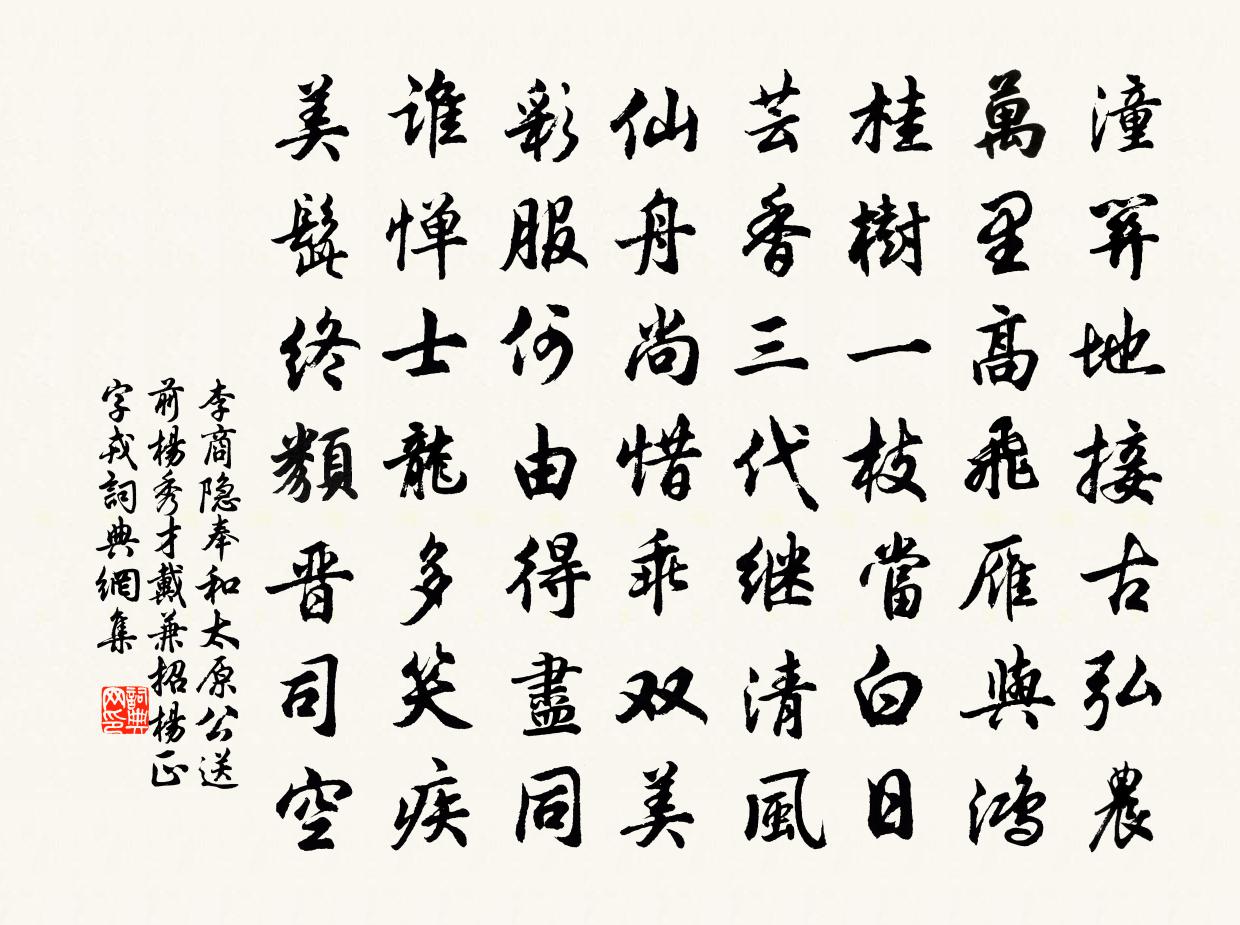 潼關地接古弘農
萬里高飛雁與鴻
桂樹一枝當白日
芸香三代继清風
仙舟尚惜乖双美
彩服何由得盡同
谁惮士龍多笑疾
美髭終類晋司空
李商隐奉和太原公送
前楊秀才戴兼招楊正
字戎詞典網集
詞典网印